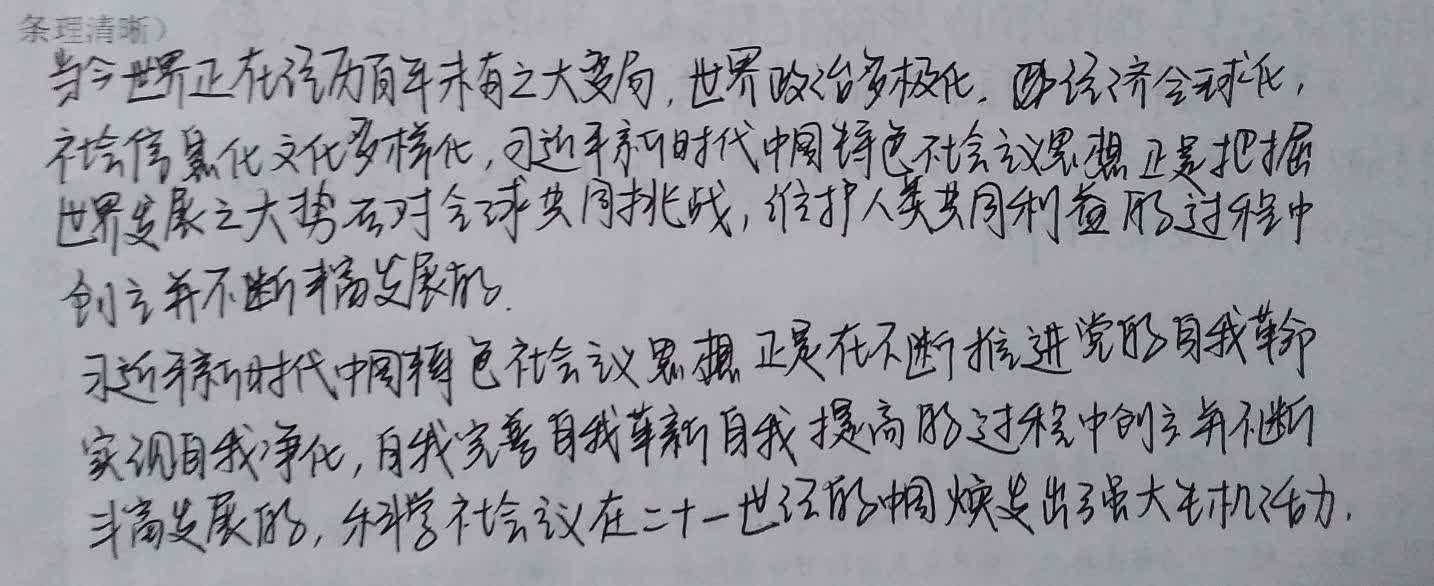 条理清晰）
当今世界正在经历百年未有之大变局，世界政治多极化，经济全球化，
社会信息化文化多样化，习近平新时代中国特色社会主义思想正是把握
世界发展之大势应对全球共同挑战，维护人类共同利益的过程中
创立并不断丰富发展的.
习近平新时代中国特色社会主义思想正是在不断推进党的自我革命
实现自我净化，自我完善自我革新自我提高的过程中创立并不断
丰富发展的，科学社会主义在二十一世纪的中国焕发出了强大生机活力.